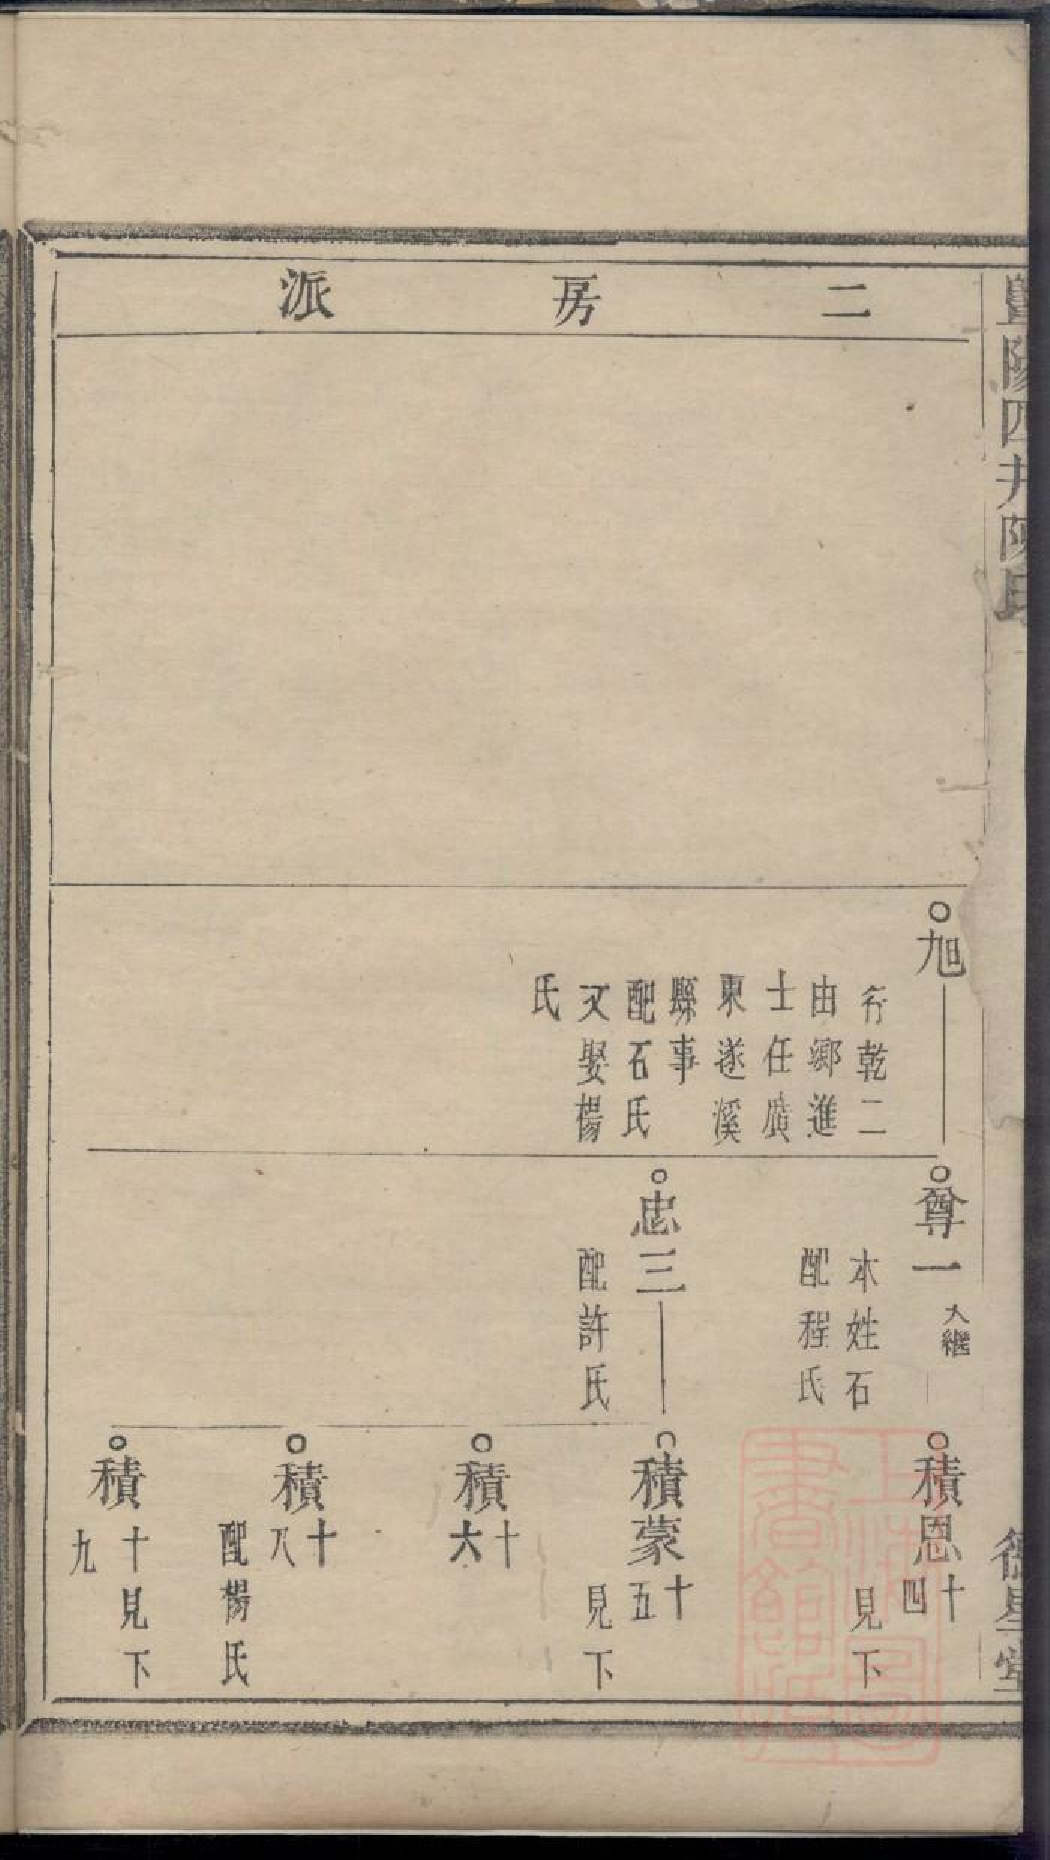 暨陽四井陳氏
德星堂
二房派
旭
行乾二
由鄉進
士任廣
東遂溪
縣事
配石氏
又娶楊
氏
尊一
入繼
本姓石
配程氏
忠三
配許氏
積恩
十四
見下
積蒙
十五
見下
積
十六
積
十八
配楊氏
積
十九
見下
上海圖書館藏